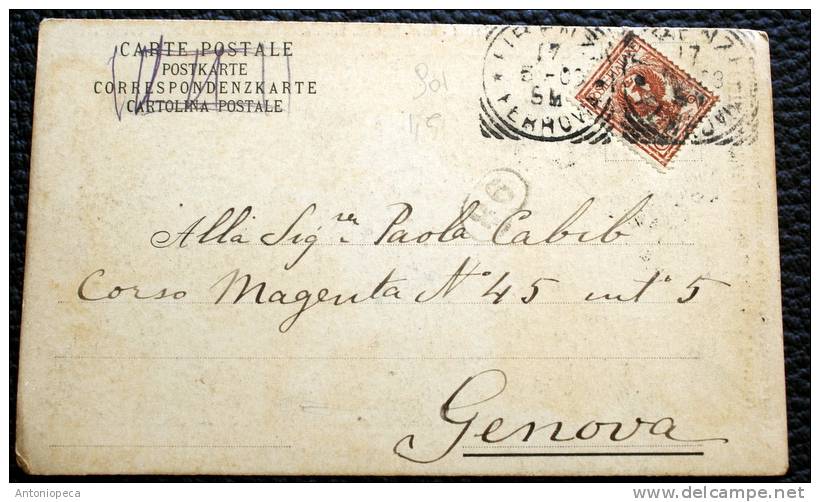 CARTE POSTALE
POSTKARTE
CORRESPONDENZKARTE
CARTOLINA POSTALE
FERROVIA
Alla Sig.ra Paola Cabib
Corso Magenta N° 45 int° 5
Genova
Antoniopeca
delcampe.net